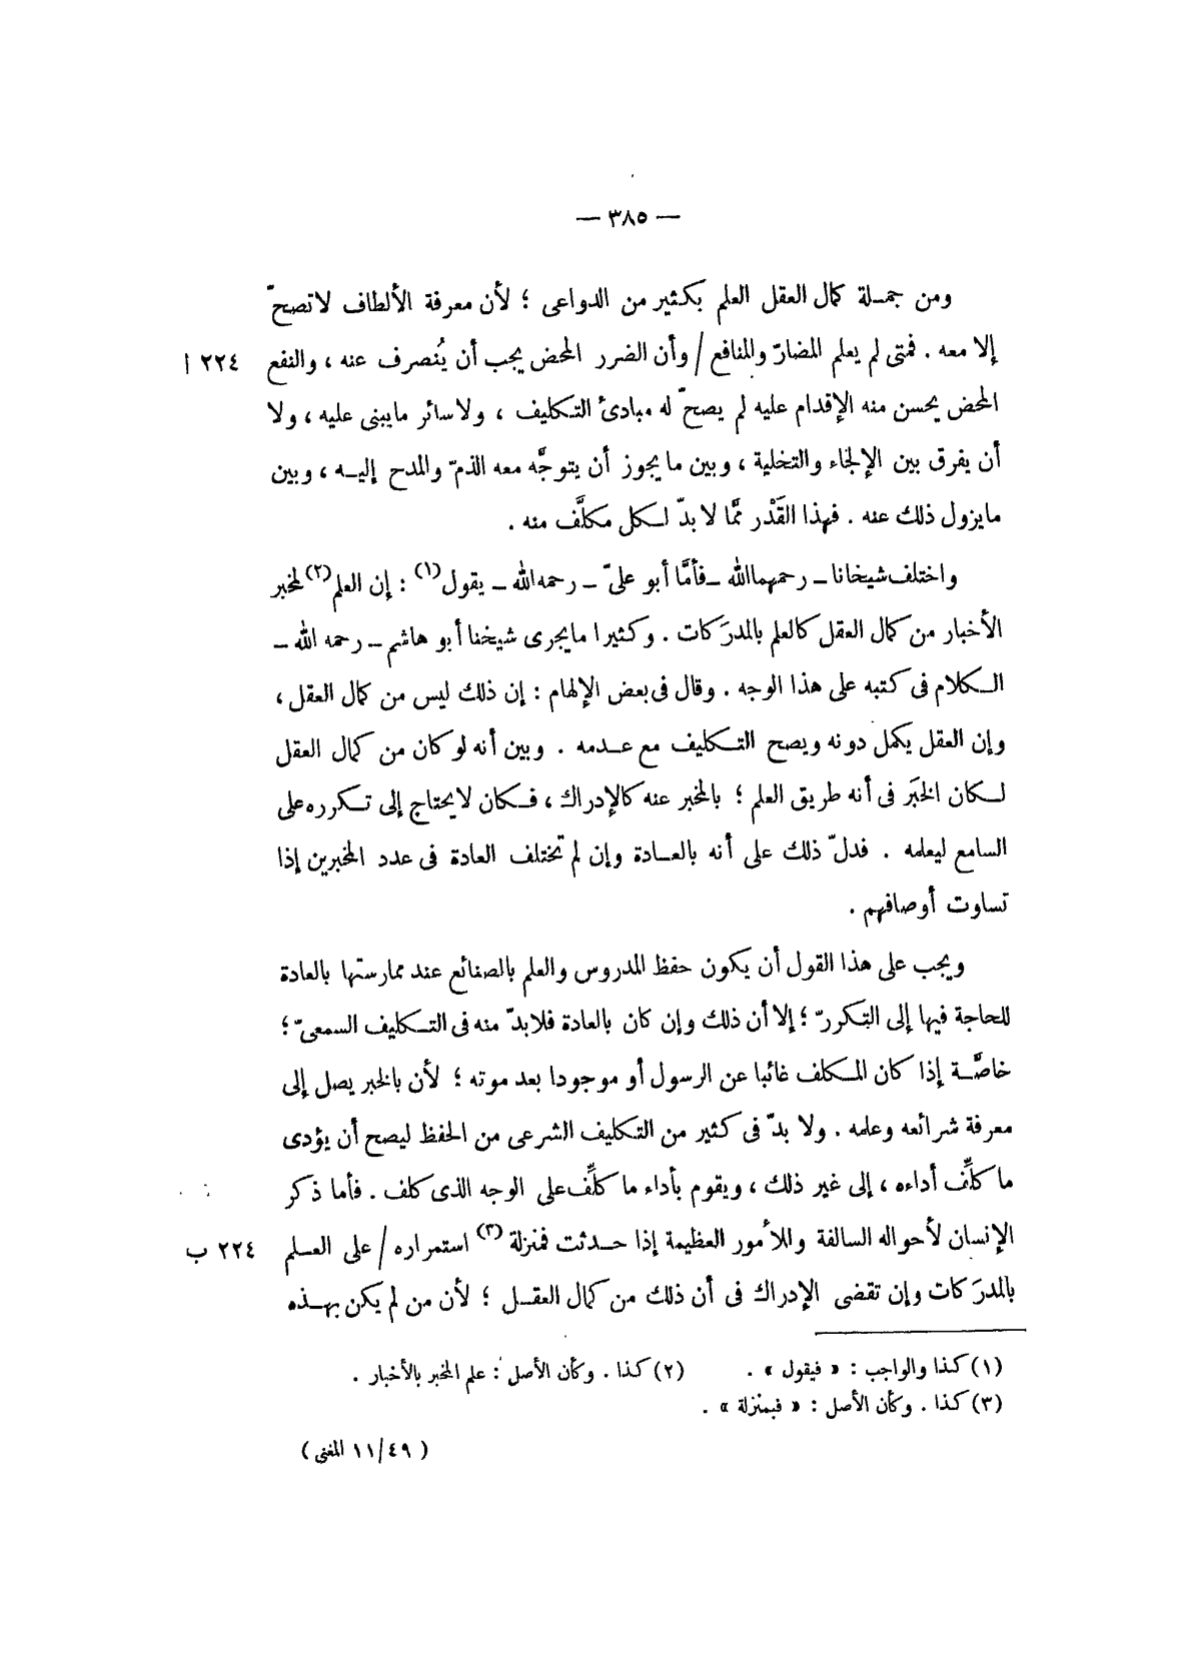 — ٣٨٥ —
ومن جمـلة كمال العقل العلم بكثير من الدواعى ؛ لأن معرفة الألطاف لاتصحّ
إلا معه . فمتى لم يعلم المضارّ والمنافع / وأن الضرر المحض يجب أن يُنصرف عنه ، والنفع ٢٢٤ ا
المحض يحسن منه الإقدام عليه لم يصحّ له مبادئ التـكليف ، ولا سائر ما يبنى عليه ، ولا
أن يفرق بين الإلجاء والتخلية ، وبين ما يجوز أن يتوجَّه معه الذمّ والمدح إليـه ، وبين
مايزول ذلك عنه . فهذا القَدْر ممَّا لا بدّ لـكل مكلَّف منه .
واختلف شيخانا – رحمهما الله – فأمَّا أبو علىّ – رحمه الله – يقول(١) : إن العلم(٢) لمخبر
الأخبار من كمال العقل كالعلم بالمدرَكات . وكثيرا مايجرى شيخنا أبو هاشم – رحمه الله –
الـكلام فى كتبه على هذا الوجه . وقال فى بعض الإلهام : إن ذلك ليس من كمال العقل ،
وإن العقل يكمل دونه ويصح التـكليف مع عـدمه . وبين أنه لو كان من كمال العقل
لـكان الخبَر فى أنه طريق العلم ؛ بالمخبر عنه كالإدراك ، فـكان لايحتاج إلى تـكرره على
السامع ليعلمه . فدلّ ذلك على أنه بالعـادة وإن لم تختلف العادة فى عدد المخبرين إذا
تساوت أوصافهم .
ويجب على هذا القول أن يكون حفظ المدروس والعلم بالصنائع عند ممارستها بالعادة
للحاجة فيها إلى التكررّ ؛ إلا أن ذلك وإن كان بالعادة فلابدّ منه فى التـكليف السمعىّ ؛
خاصَّـة إذا كان المـكلف غائبا عن الرسول أو موجودا بعد موته ؛ لأن بالخبر يصل إلى
معرفة شرائعه وعلمه . ولا بدّ فى كثير من التكليف الشرعى من الحفظ ليصح أن يؤدى
ما كلِّف أداءه ، إلى غير ذلك ، ويقوم بأداء ما كلِّف على الوجه الذى كلف . فأما ذكر
الإنسان لأحواله السالفة وللأمور العظيمة إذا حـدثت فمنزلة(٣) استمراره / على العـلم ٢٢٤ ب
بالمدرَكات وإن تقضى الإدراك فى أن ذلك من كمال العقـل ؛ لأن من لم يكن بهـذه
(١) كذا والواجب : « فيقول » . (٢) كذا . وكأن الأصل : علم المخبر بالأخبار .
(٣) كذا . وكأن الأصل : « فبمنزلة » .
( ٤٩/ ١١ المغنى )